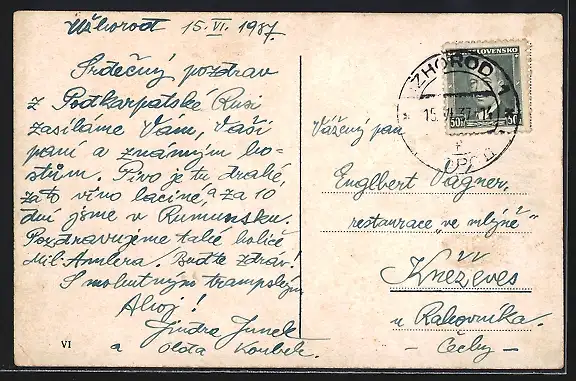 Užhorod 15.VI. 1937.
Srdečný pozdrav
z Podkarpatské Rusi
zasíláme Vám, Vaší
paní a známým ho-
stům. Pivo je tu drahé,
zato víno laciné, a za 10
dní jsme v Rumunsku.
Pozdravujeme také holiče
Mil. Amlera. Buďte zdráv!
S mohutným trampským
Ahoj!
Jindra Junek
a Olota Koubek.
VI
SLOVENSKO
50h 50h
ZHOROD 1
15.VI.37
Vážený pan
Englbert Vágner,
restaurace „ve mlýně"
Kněževes
u Rakovníka.
- Čechy -